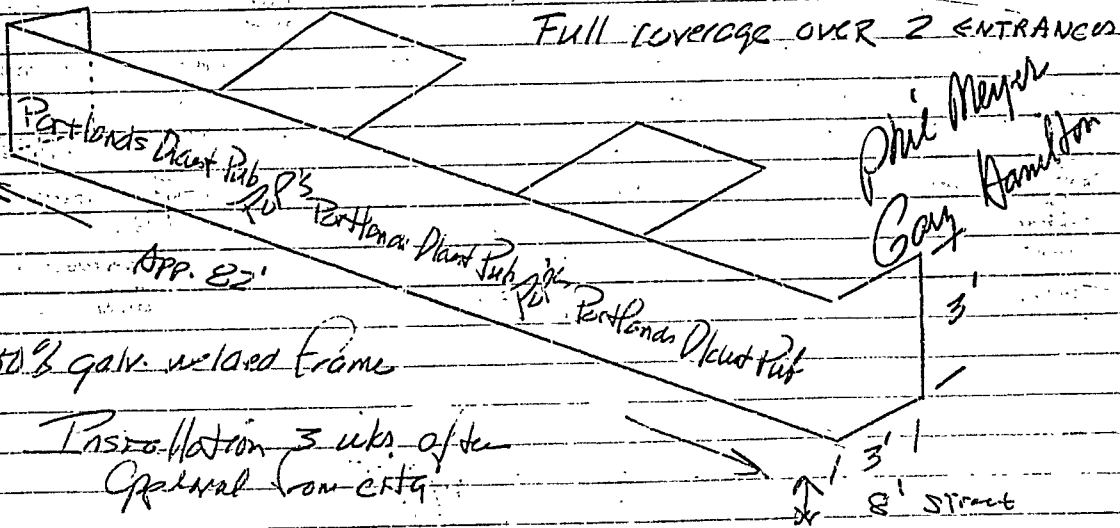 Full coverage OVER 2 ENTRANCES
Phil Meyer
Gary Hamilton
Portlands Oldest Pub
Portlands Oldest Pub
Portlands Oldest Pub
App. 82'
3'
galv. welded frame
Installation 3 wks. after
Approval from city
3'
8' Street